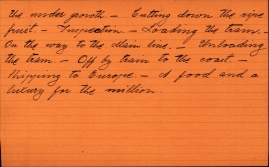 the under growth – Cutting down the ripe
fruit. – Inspection. – Loading the tram. –
On the way to the Main line. – Unloading
the tram. – Off by train to the coast. –
Shipping to Europe – A food and a
luxury for the million.